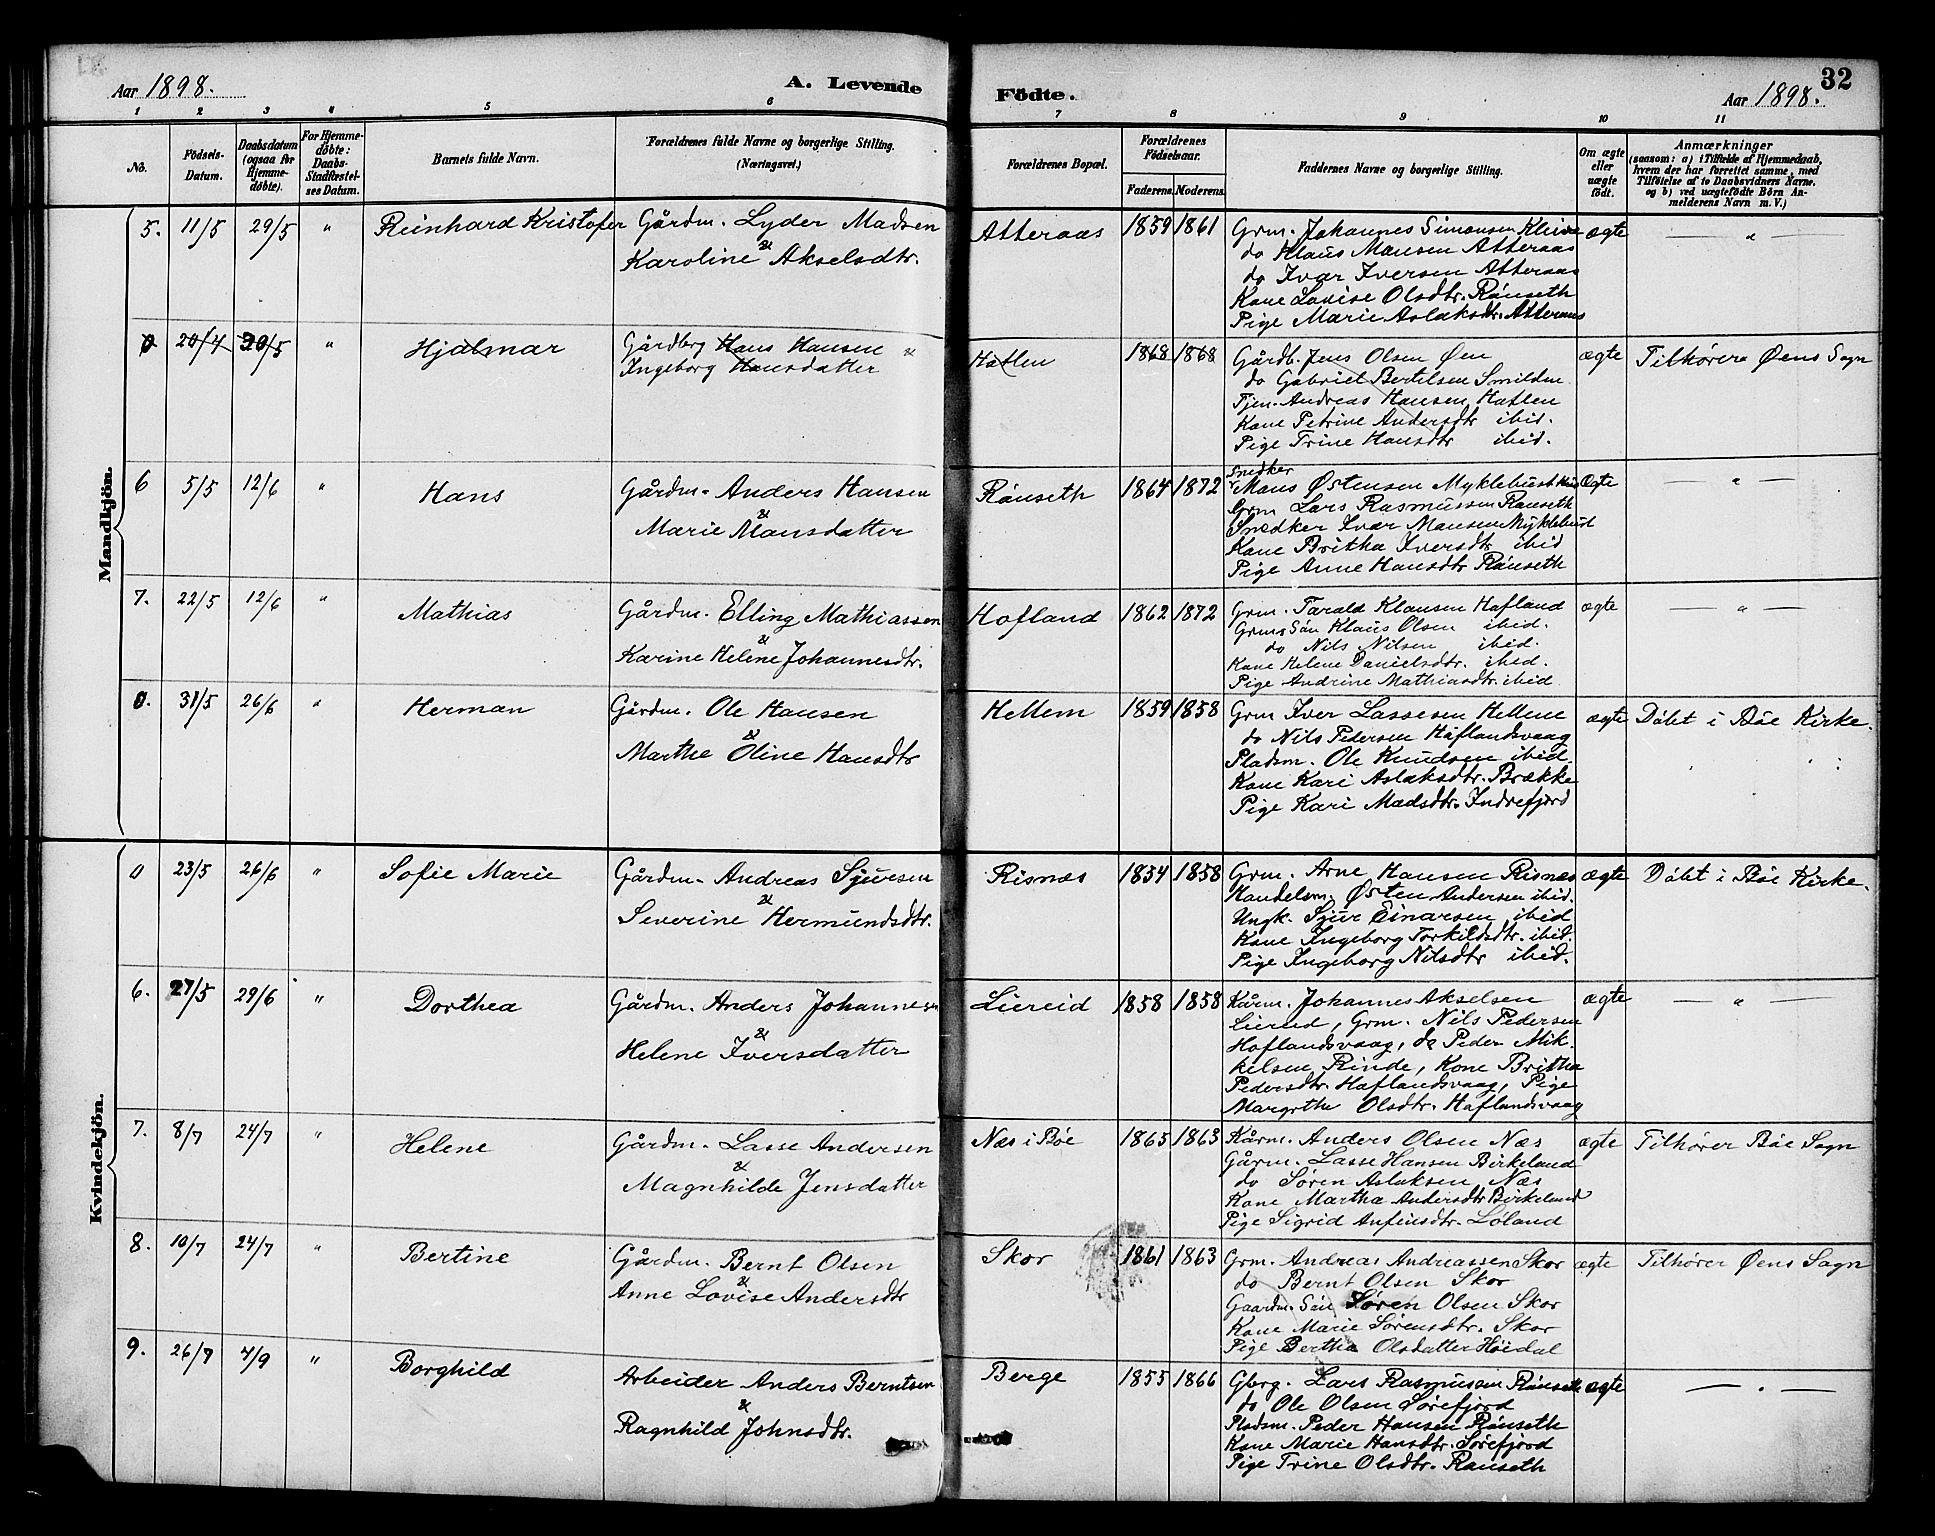 Aar 1898.
A. Levende
Födte.
32
Aar 1898.
1 2 3 4 5 6 7 8 9 10 11
No.
Födsels-Datum.
Daabsdatum (ogsaa for Hjemme-döbte).
For Hjemme-döbte: Daabs-Stadfæstel-ses Datum.
Barnets fulde Navn.
Forældrenes fulde Navne og borgerlige Stilling.
(Næringsvei.)
Forældrenes Bopæl.
Forældrenes Födselsaar.
Faderens. Moderens.
Faddernes Navne og borgerlige Stilling.
Om ægte eller uægte födt.
Anmærkninger
(saasom: a) i Tilfælde af Hjemmedaab, hvem der har forrettet samme, med Tilföielse af to Daabsvidners Navne, og b) ved uægtefödte Börn An-melderens Navn m. V.)
Mandkjön.
5. 11/5 29/5 " Reinhard Kristofer Gårdm. Lyder Madsen
&
Karoline Akselsdtr.
Atteraas 1859 1861 Grm. Johannes Simonsen Kleive ægte — " —
do Klaus Mansen Atteraas
do Ivar Iversen Atteraas
Kone Lovise Olsdtr. Rånseth
Pige Marie Aslaksdtr. Atteraas
0 20/4 30/5 " Hjalmar Gårdbrg Hans Hansen &
Ingeborg Hansdatter
Hatlen 1868 1868 Gårdb. Jens Olsen Øen ægte Tilhører Øens Sogn
do Gabriel Bertelsen Smilden
Tjen. Andreas Hansen Hatlen
Kone Petrine Andersdtr ibid.
Pige Trine Hansdtr ibid.
6 5/5 12/6 " Hans Gårdm. Anders Hansen
&
Marie Mansdatter
Rånseth 1864 1872 Snedker
Mons Østensen Myklebust ægte — " —
Grm Lars Rasmussen Rånseth
Snedker Ivar Mansen Myklebust
Kone Britha Iversdtr ibid
Pige Anne Hansdtr Rånseth
7. 22/5 12/6 " Mathias Gårdm. Elling Mathiassen
&
Karine Helene Johannesdtr.
Hofland 1862 1872 Grm. Tarald Klausen Hafland ægte — " —
Grms Søn Klaus Olsen ibid.
do Nils Nilsen ibid.
Kone Helene Danielsdtr. ibid.
Pige Andrine Mathiasdtr. ibid
0. 31/5 26/6 " Herman Gårdm. Ole Hansen
&
Marthe Oline Hansdtr
Hellem 1859 1858 Grm Iver Lassesen Hellene ægte Döbt i Böe Kirke.
do Nils Pedersen Haflandsvaag
Pladsm. Ole Knudsen ibid.
Kone Kari Aslaksdtr. Brække
Pige Kari Madsdtr. Indrefjord
Kvindekjön.
0 23/5 26/6 " Sofie Marie Gårdm. Andreas Sjuresen
&
Severine Hermundsdtr.
Risnæs 1854 1858 Grm. Arne Hansen Risnæs ægte Döbt i Böe Kirke.
Handelsm. Østen Andersen ibid.
Ungk. Sjur Einarsen ibid
Kone Ingeborg Torkildsdtr. ibid.
Pige Ingeborg Nilsdtr ibid.
6. 27/5 29/6 " Dorthea Gårdm. Anders Johannesen
&
Helene Iversdatter
Liereid 1858 1858 Kårm. Johannes Akselsen ægte — " —
Liereid, Grm. Nils Pedersen
Haflandsvaag, do Peder Mik-
kelsen Rinde, Kone Britha
Pedersdtr. Haflandsvaag, Pige
Margrthe Olsdtr. Haflandsvaag
7. 8/7 24/7 " Helene Gårdm. Lasse Andersen
&
Magnhilde Jensdatter
Næs i Böe 1865 1863 Kårm. Anders Olsen Næs ægte Tilhører Böe Sogn
Gårm. Lasse Hansen Birkeland
do Sören Aslaksen Næs
Kone Martha Andersdtr Birkeland
Pige Sigrid Anfinsdtr. Löland
8. 10/7 24/7 " Bertine Gårdm. Bernt Olsen
&
Anne Lovise Andersdtr
Skor 1861 1863 Grm. Andreas Andreassen Skor ægte Tilhører Øens Sogn
do Bernt Olsen Skor
Gaardm. Sön Sören Olsen Skor
Kone Marie Sörensdtr. Skor
Pige Bertha Olsdatter Höidal
9. 26/7 4/9 " Borghild Arbeider Anders Berntsen
&
Ragnhild Johnsdtr.
Berge 1855 1866 Gbrg. Lars Rasmussen Rånseth ægte — " —
do Ole Olsen Sörefjord
Pladsm. Peder Hansen Rånseth
Kone Marie Hansdtr. Sörefjord
Pige Trine Olsdtr. Rånseth